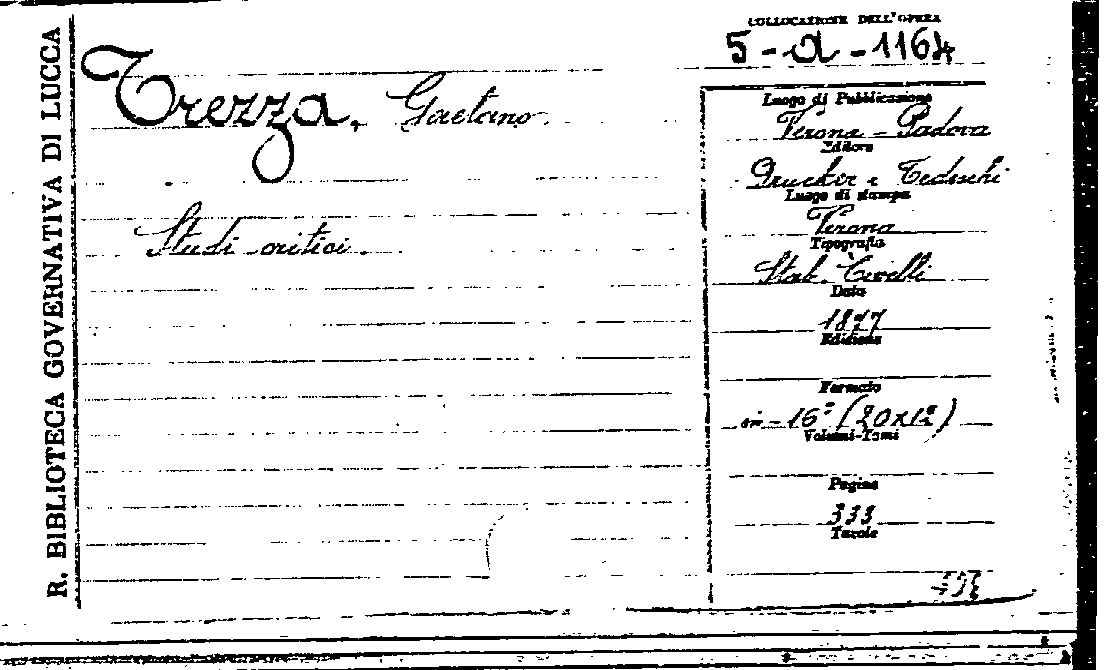 R. BIBLIOTECA GOVERNATIVA DI LUCCA
COLLOCAZIONE DELL'OPERA
5-a-1164
Trezza, Gaetano.
Studi critici.
Luogo di Pubblicazione
Verona - Padova
Editore
Drucker e Tedeschi
Luogo di stampa
Verona
Tipografia
Stab. Civelli
Data
1877
Edizione
Formato
in-16° (20x12)
Volumi-Tomi
Pagine
333
Tavole